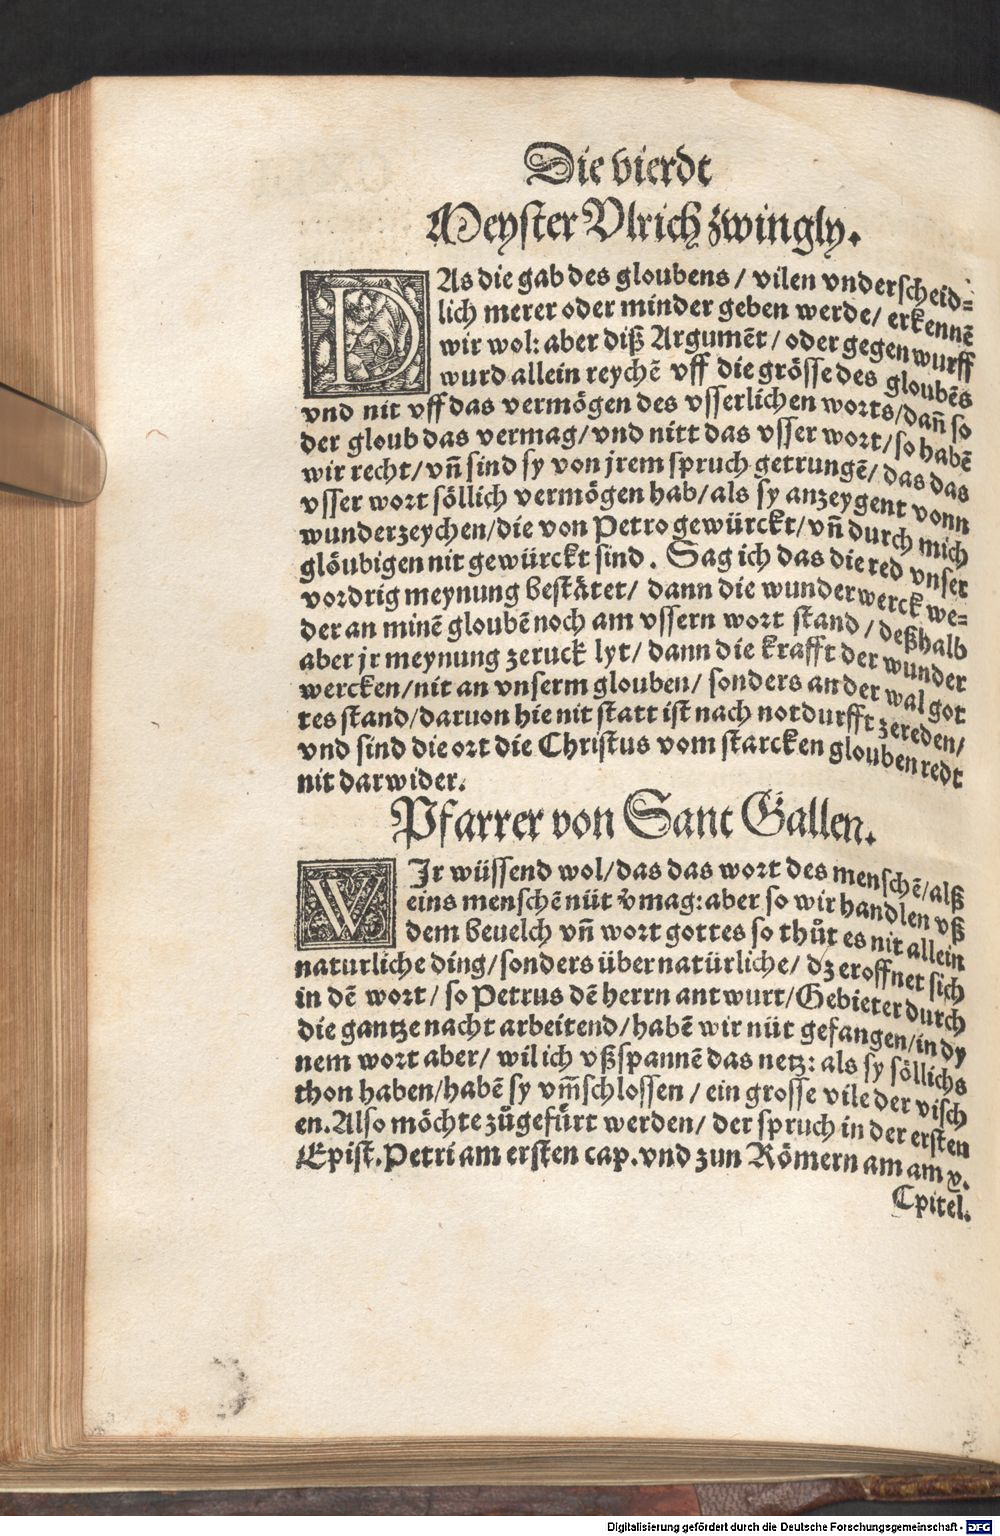 Die vierdt
Meyster Vlrich zwingly.
DAs die gab des gloubens / vilen vnderscheid⸗
lich merer oder minder geben werde/ erkennē
wir wol: aber diß Argumēt / oder gegenwurff
wurd allein reychē vff die grösse des gloubēs
vnd nit vff das vermögen des vsserlichen worts/dañ so
der gloub das vermag/vnd nitt das vsser wort/so habē
wir recht/vñ sind sy von jrem spruch getrungē/ das das
vsser wort söllich vermögen hab/als sy anzeygent vonn
wunderzeychen/die von Petro gewürckt/vñ durch mich
glöubigen nit gewürckt sind. Sag ich das die red vnser
vordrig meynung bestätet/ dann die wunderwerck we⸗
der an minē gloubē noch am vssern wort stand / deßhalb
aber jr meynung zeruck lyt/ dann die krafft der wunder
wercken/nit an vnserm glouben/ sonders an der wal got
tes stand/daruon hie nit statt ist nach notdurfft zereden/
vnd sind die ort die Christus vom starcken glouben redt
nit darwider.
Pfarrer von Sant Gallen.
WJr wüssend wol/das das wort des menschē/alß
eins menschē nüt v̄mag: aber so wir handlen vß
dem beuelch vñ wort gottes so thůt es nit allein
naturliche ding/sonders übernatürliche/ dz eroffnet sich
in dē wort/ so Petrus dē herrn antwurt/Gebieter durch
die gantze nacht arbeitend/habē wir nüt gefangen/in dy
nem wort aber/ wil ich vßspannē das netz: als sy söllichs
thon haben/habē sy vm̄schlossen / ein grosse vile der visch
en. Also möchte zůgefürt werden/ der spruch in der ersten
Epist. Petri am ersten cap. vnd zun Römern am am x.
Cpitel.
Digitalisierung gefördert durch die Deutsche Forschungsgemeinschaft - DFG